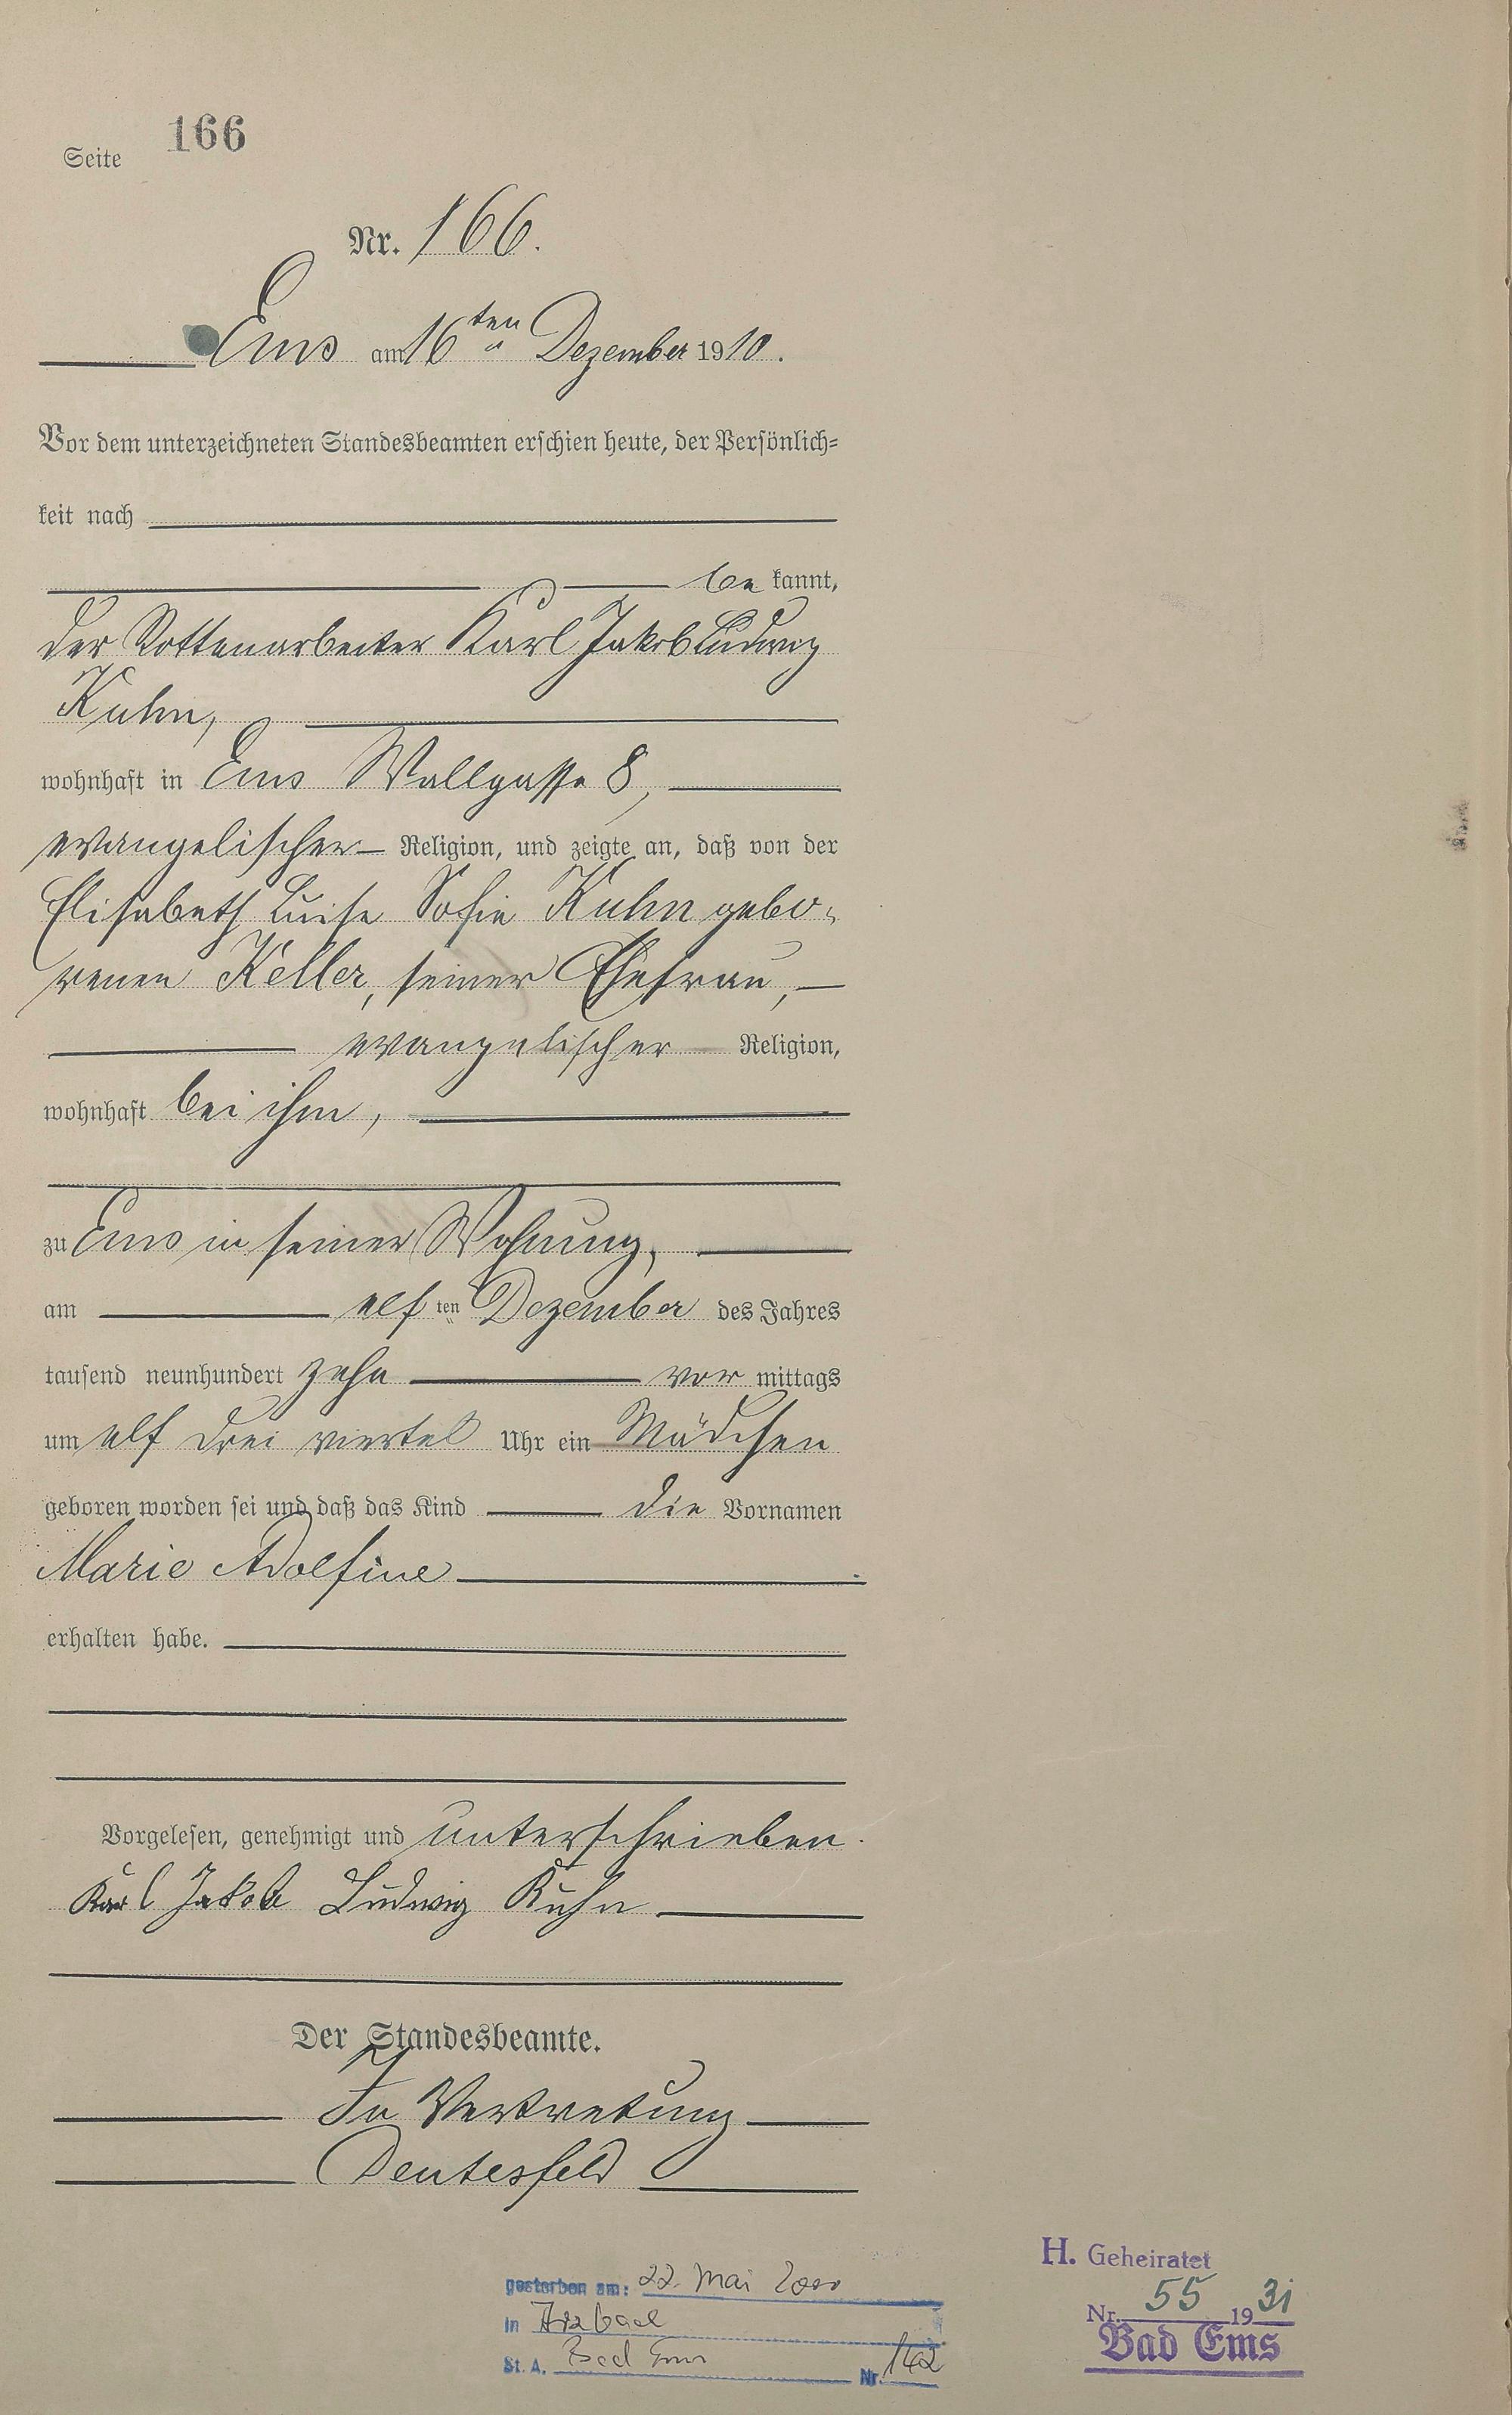 Seite 166
Nr. 166.
Ems am 16ten Dezember 1910.
Vor dem unterzeichneten Standesbeamten erschien heute, der Persönlich=
keit nach
bekannt,
der Rottenarbeiter Karl Jakob Ludwig
Kuhn,
wohnhaft in Ems Wallgasse 8,
evangelischer Religion, und zeigte an, daß von der
Elisabeth Luise Sofie Kuhn gebo-
renen Keller, seiner Ehefrau,
evangelischer Religion,
wohnhaft bei ihm,
zu Ems in seiner Wohnung,
am elften Dezember des Jahres
tausend neunhundert zehn vormittags
um elf drei viertel Uhr ein Mädchen
geboren worden sei und daß das Kind die Vornamen
Marie Adolfine
erhalten habe.
Vorgelesen, genehmigt und unterschrieben.
Karl Jakob Ludwig Kuhn
Der Standesbeamte.
In Vertretung
Deutesfeld
gestorben am: 22. Mai 2000
in Arzbach
St. A. Bad Ems Nr. 142
H. Geheiratet
Nr. 55 1931
Bad Ems